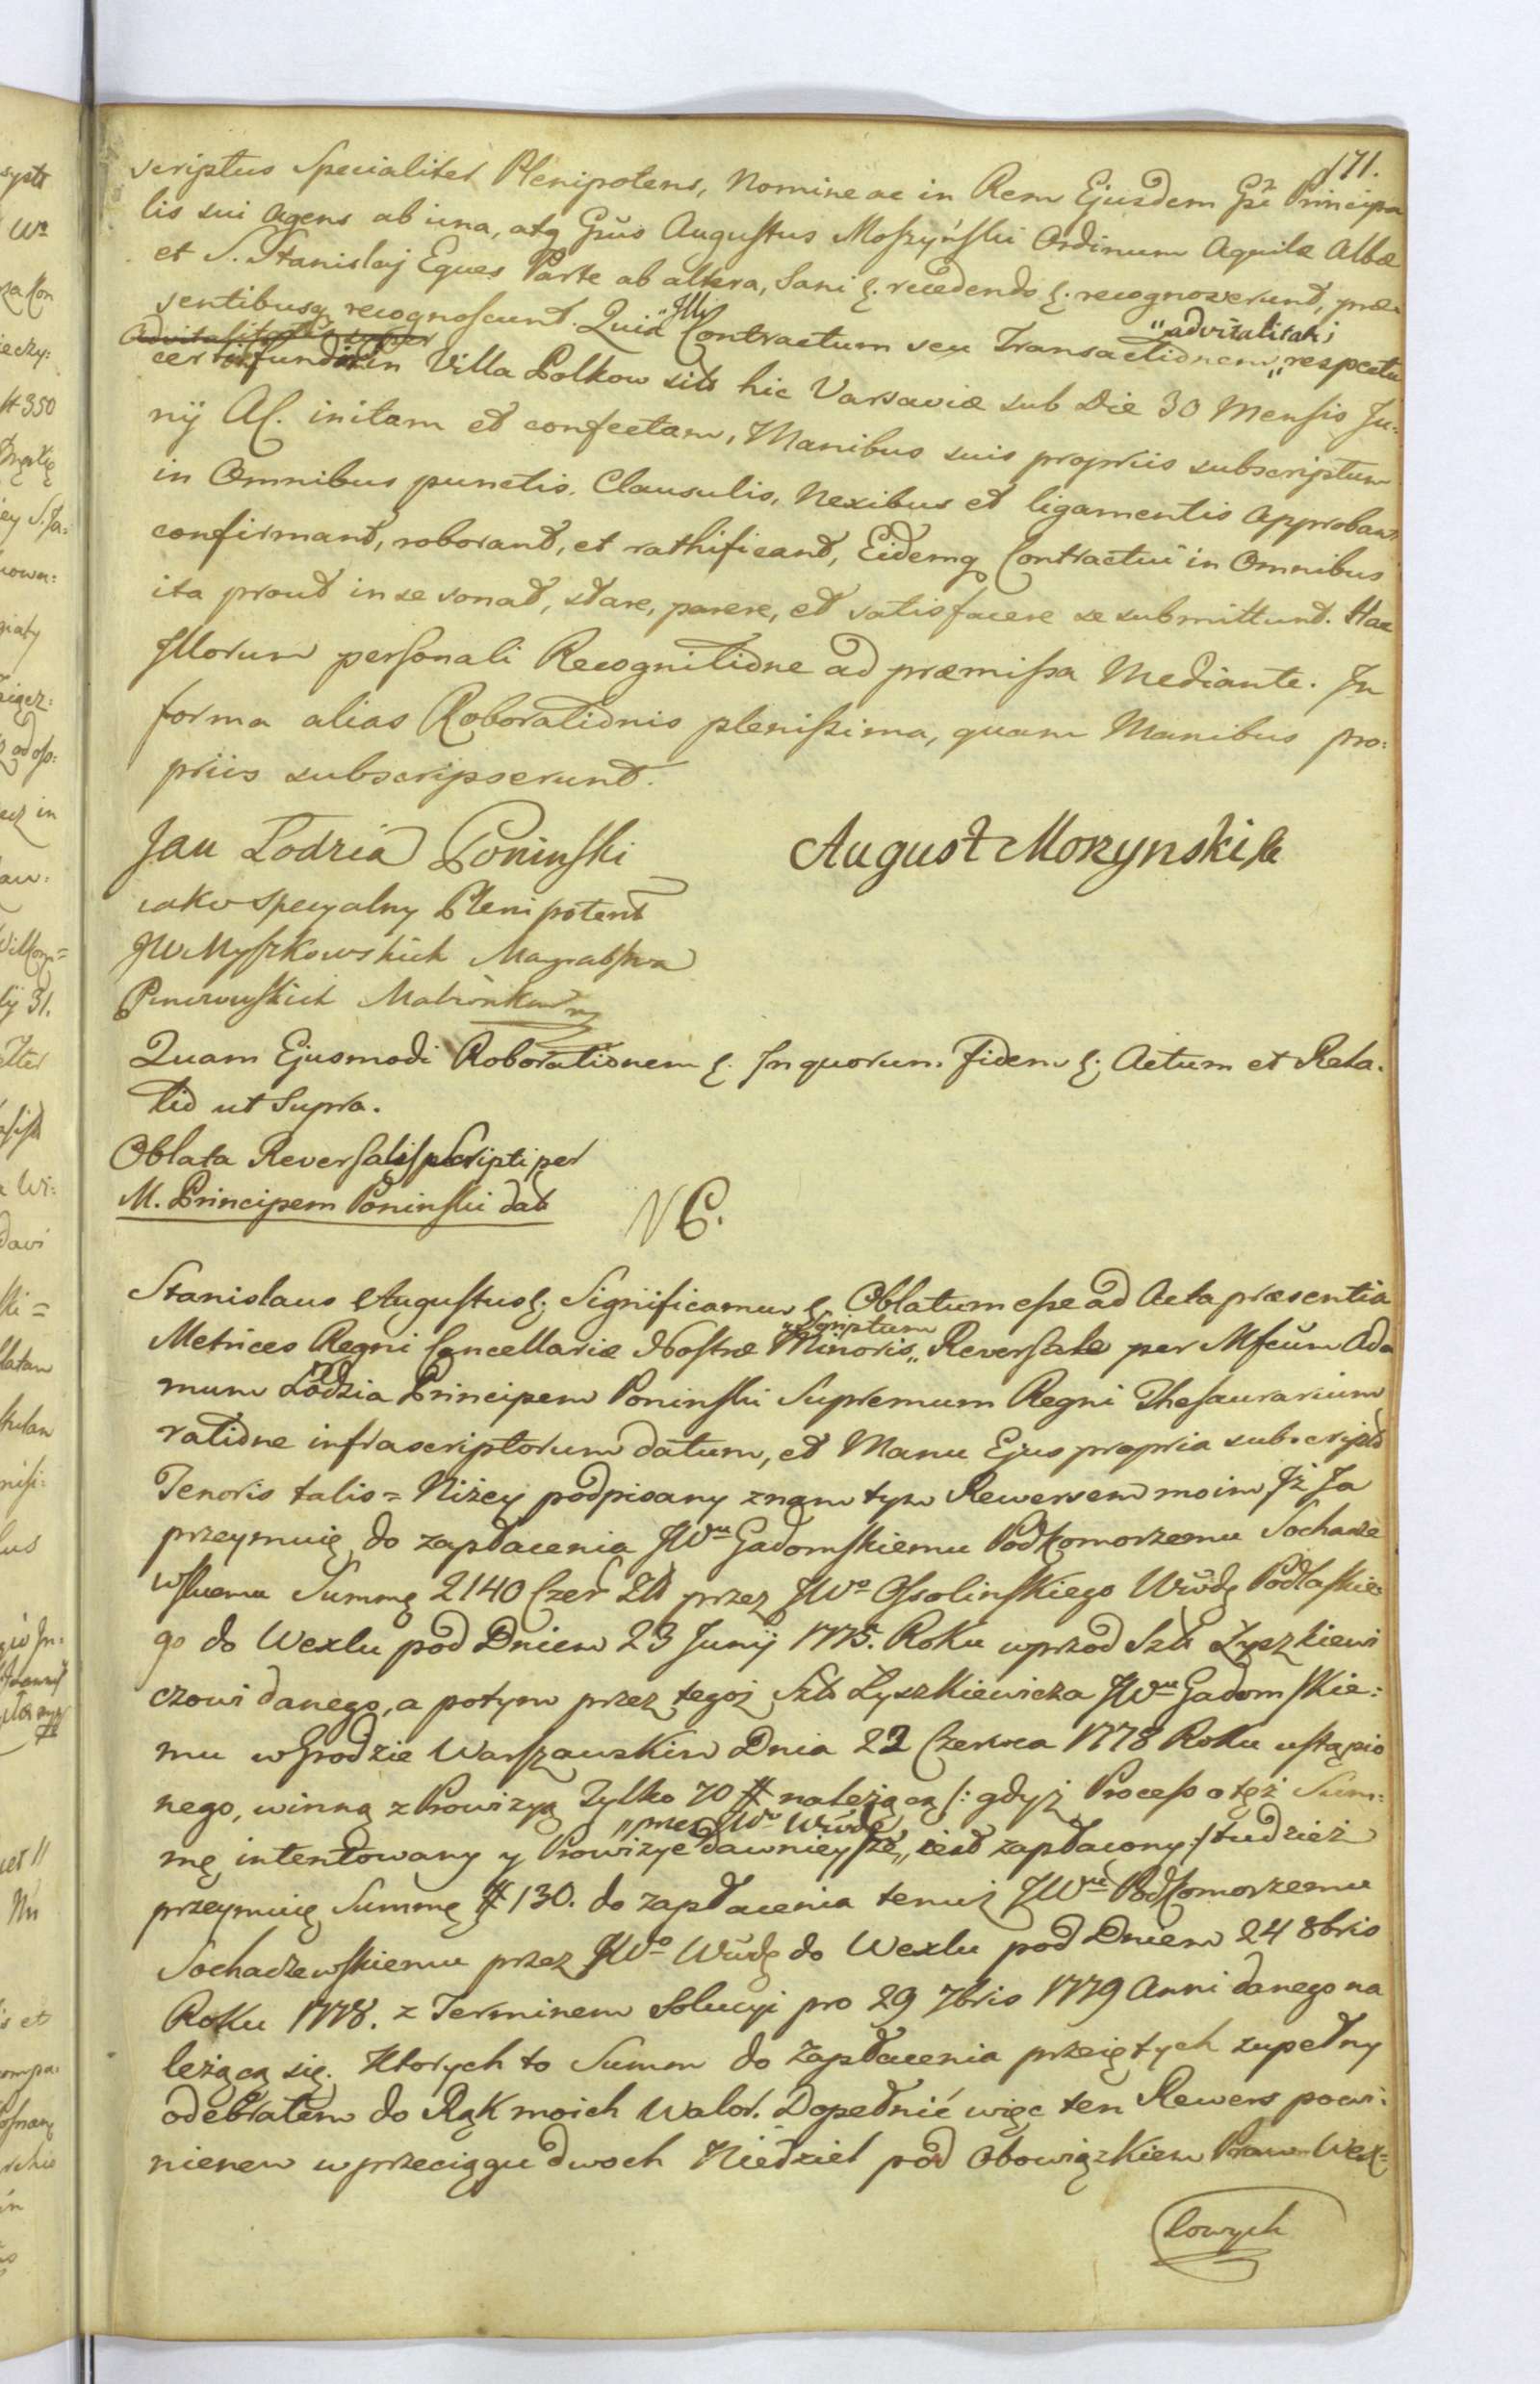 171.
scriptus Specialiter Plenipotens, Nomine ac in Rem Ejusdem Gsi Principa
lis sui agens ab una, atq Gsus Augustus Moszyński Ordinum Aquilæ Albæ
et S. Stanislaj Eques Parte ab altera, Sani &. recedendo &. recognoverunt, præ=
sentibusq recognoscunt. Quia Illi Contractum seu Transactionem „advitalitatis respectu
in Villa Polkow sits hic Varsaviæ sub Die 30 Mensis Ju=
nij AC. initam et confectam, Manibus suis propriis subscriptum
in Omnibus punctis, Clausulis, Nexibus et ligamentis approbant
confirmant, roborant, et rathificant, Eidemq Contractui in Omnibus
ita prout in se sonat, stare, parere, et satisfacere se submittunt. Hac
Illorum personali Recognitione ad præmissa Mediante. In
forma alias Roborationis plenissima, quam Manibus pro=
priis subscripserunt.
Jan Lodzia Poninski
August Moszynski
iako specyalny Plenipotent
JW Myszkowskich
Pinczowskich Małżonkow
Quam Ejusmodi Roborationem &. In quorum Fidem &. Actum et Rela.
tio ut Supra.
Oblata Reversalis Scripti per
M. Principem Poninski dat
Stanislaus Augustus &. Significamus &. Oblatum esse ad Acta præsentia
Metrices Regni Cancellariæ Nostræ Minoris „Scriptum Reversale per Mfcum Ada
mum Łodzia Principem Poninski Supremum Regni Thesaurarium
ratione infrascriptorum datum, et Manu Ejus propria subscript
Tenoris talis = Niżey podpisany znam tym Rewersem moim Iż Ja
przeymuię do zapłacenia JWu Gadomskiemu Podkomorzemu Sochacze
wskiemu Summę 2140 Czer Zł przez JWo Ossolinskiego Wwdę Podlaskie
go do Wexlu pod Dniem 23 Junij 1775. Roku wprzod Szl Łyszkiewi
czowi danego, a potym przez tegoż Szl Łyszkiewicza JWu Gadomskie=
mu w Grodzie Warszawskim Dnia 22 Czerwca 1778 Roku ustąpio
nego, winną z Prowizyą Tylko 70 # należącą /: gdyż Process o tęż Sum=
mę intentowany y Prowizye dawnieysze „przez JWo Wwdę iest zapłacony :/ tudzież
przeymuię Summę # 130. do zapłacenia temuż JWu Podkomorzemu
Sochaczewskiemu przez JWo Wwdę do Wexlu pod Dniem 24 8bris
Roku 1778. z Terminem Solucyi pro 29 7bris 1779 Anni danego na
leżącą się. Ktorych to Summ do Zapłacenia przeiętych zupełny
odebrałem do Rąk moich Walor. Dopełnić więc ten Rewers powi=
nienem w przeciągu dwoch Niedziel pod Obowiązkiem Praw Wex=
lowych